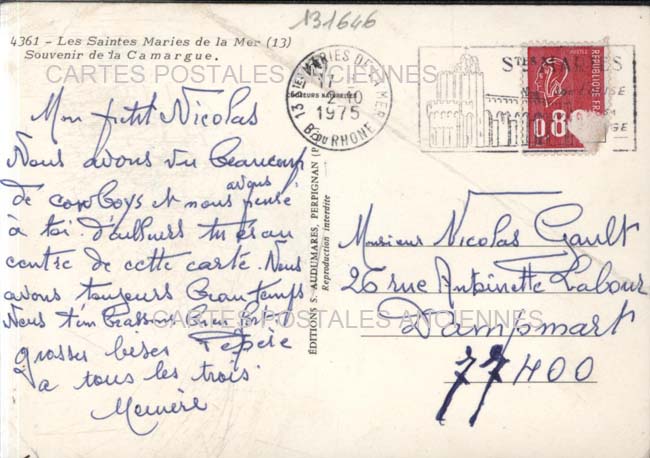 131646
4361 - Les Saintes Maries de la Mer (13)
Souvenir de la Camargue.
CARTES POSTALES ANCIENNES
Mon petit Nicolas
Nous avons vu beaucoup
de cow boys et nous avons pensé
à toi. D'ailleurs tu es au
centre de cette carte. Nous
avons toujours beau temps
Nous t'embrassons bien fort
grosses bises Pépère
a tous les trois.
Mémère
13 STES MARIES DE LA MER
2-10
1975
B. DU RHONE
ÉDITIONS S. AUDUMARES, PERPIGNAN
Reproduction interdite
REPUBLIQUE FR
POSTES
0.8
Monsieur Nicolas Gault
26 rue Antoinette Labour
Dampmart
77400
CARTES POSTALES ANCIENNES